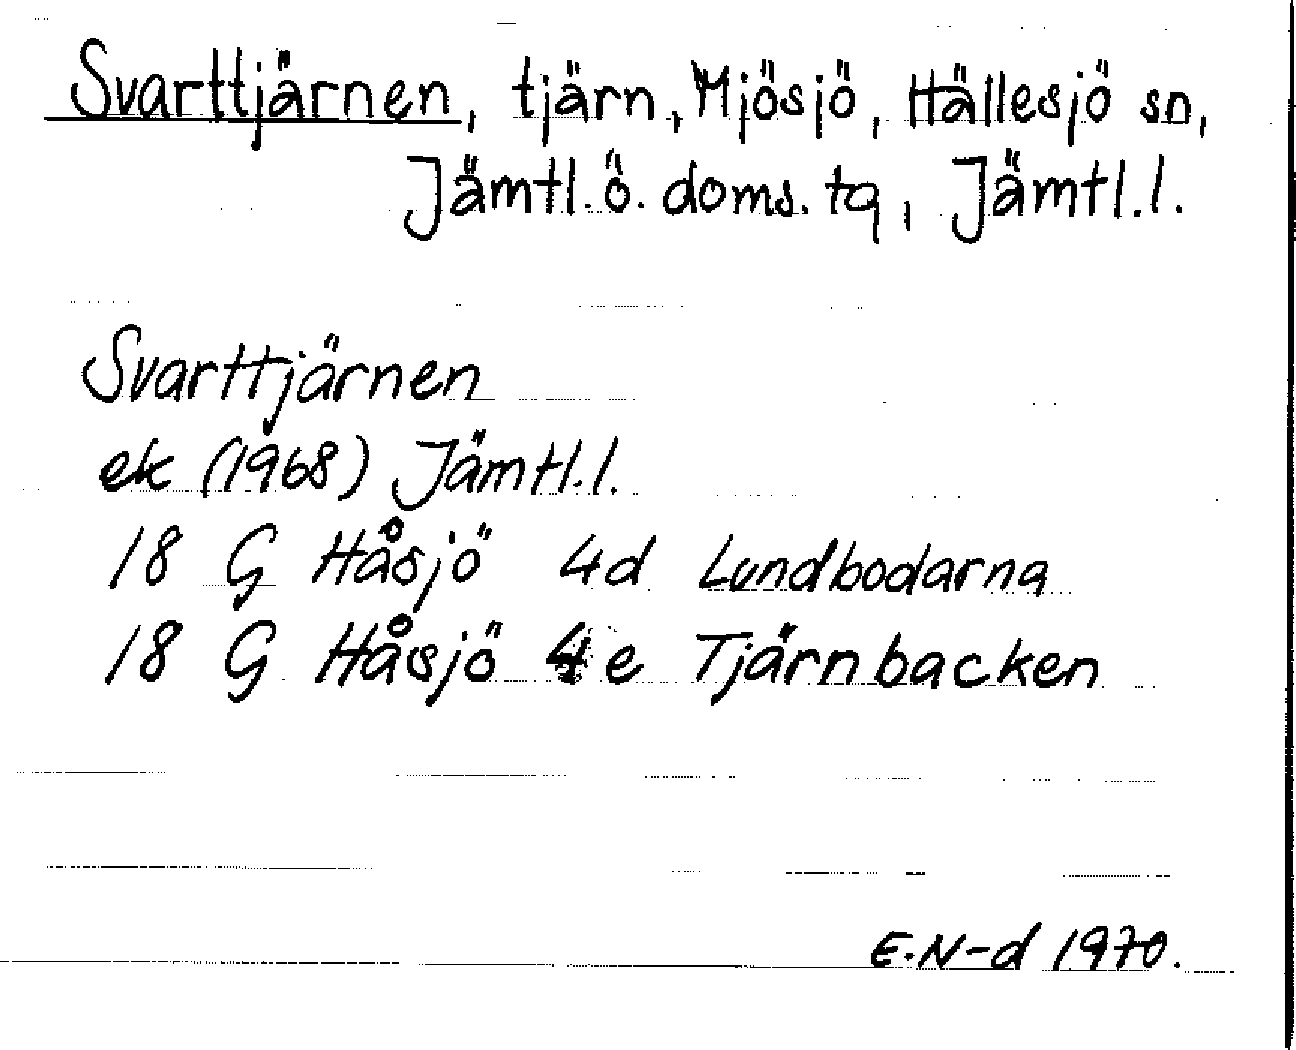 Svarttjärnen, tjärn, Mjösjö, Hällesjö sn,
Jämtl.ö. doms. tg, Jämtl.l.
Svarttjärnen
ek (1968) Jämtl.l.
18 G Håsjö 4d Lundbodarna
18 G Håsjö 4e Tjärnbacken
E.N-d 1970.